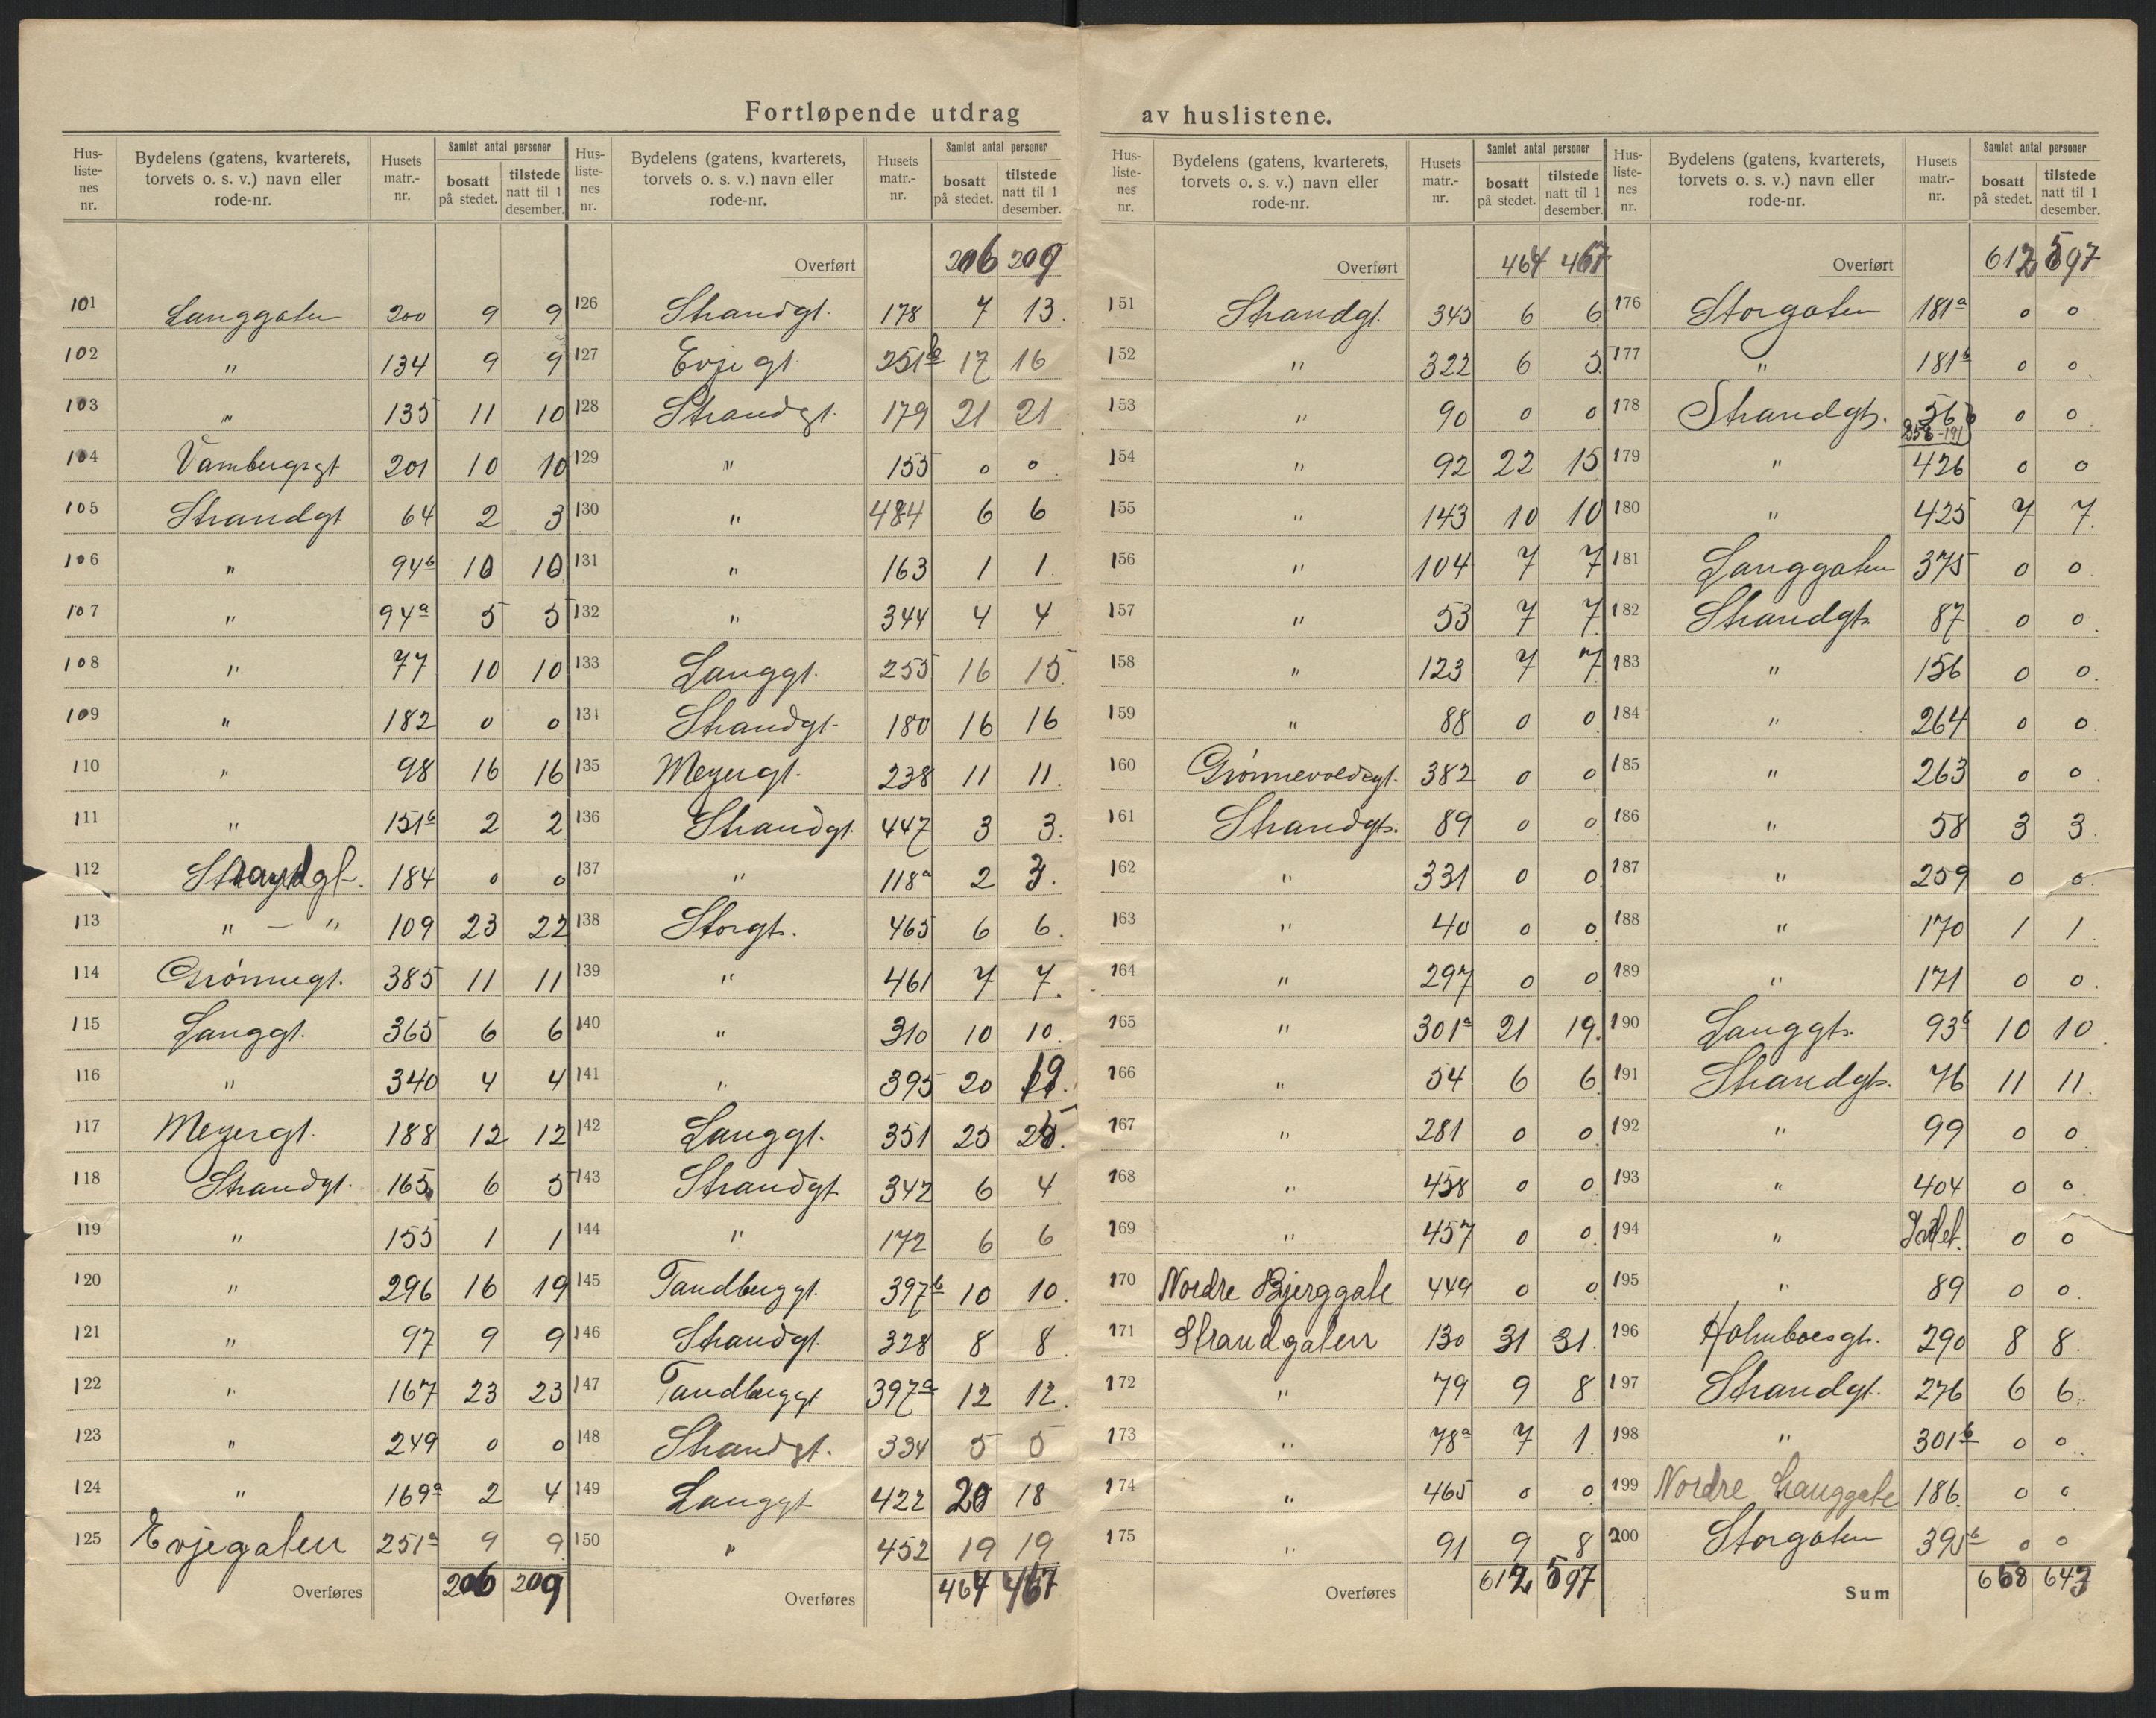 Fortløpende utdrag av huslistene.
Hus-liste-nes nr. | Bydelens (gatens, kvarterets, torvets o. s. v.) navn eller rode-nr. | Husets matr.-nr. | Samlet antal personer | bosatt på stedet. | tilstede natt til 1 desember.
101 Langgaten 200 9 9
102 " 134 9 9
103 " 135 11 10
104 Vambergsgt 201 10 10
105 Strandgt 64 2 3
106 " 94b 10 10
107 " 94a 5 5
108 " 77 10 10
109 " 182 0 0
110 " 98 16 16
111 " 151b 2 2
112 Strandgt. 184 0 0
113 " — " 109 23 22
114 Grönnegt. 385 11 11
115 Langgt. 365 6 6
116 " 340 4 4
117 Meyergt. 188 12 12
118 Strandgt. 165 6 5
119 " 155 1 1
120 " 296 16 19
121 " 97 9 9
122 " 167 23 23
123 " 249 0 0
124 " 169a 2 4
125 Evjegaten 251a 9 9
Overføres 206 209
Hus-liste-nes nr. | Bydelens (gatens, kvarterets, torvets o. s. v.) navn eller rode-nr. | Husets matr.-nr. | Samlet antal personer | bosatt på stedet. | tilstede natt til 1 desember.
Overført 206 209
126 Strandgt. 178 7 13.
127 Evjegt. 251b 17 16
128 Strandgt. 179 21 21
129 " 155 0 0.
130 " 484 6 6
131 " 163 1 1
132 " 344 4 4
133 Langgt. 255 16 15.
134 Strandgt. 180 16 16
135 Meyergt. 238 11 11.
136 Strandgt. 447 3 3.
137 " 118a 2 3.
138 Storgt. 465 6 6.
139 " 461 7 7.
140 " 310 10 10.
141 " 395 20 19.
142 Langgt. 351 25 25.
143 Strandgt 342 6 4
144 " 172 6 6
145 Tandberggt. 397b 10 10.
146 Strandgt. 328 8 8.
147 Tandberggt 397a 12 12.
148 Strandgt. 334 5 5
149 Langgt 422 20 18
150 " 452 19 19
Overføres 464 467
Hus-liste-nes nr. | Bydelens (gatens, kvarterets, torvets o. s. v.) navn eller rode-nr. | Husets matr.-nr. | Samlet antal personer | bosatt på stedet. | tilstede natt til 1 desember.
Overført 464 467
151 Strandgt. 345 6 6
152 " 322 6 5.
153 " 90 0 0
154 " 92 22 15
155 " 143 10 10
156 " 104 7 7
157 " 53 7 7.
158 " 123 7 7
159 " 88 0 0
160 Grönnevoldsgt. 382 0 0
161 Strandgt. 89 0 0
162 " 331 0 0
163 " 40 0 0
164 " 297 0 0
165 " 301a 21 19.
166 " 54 6 6
167 " 281 0 0.
168 " 458 0 0.
169 " 457 0 0.
170 Nordre Bjerggate 449 0 0
171 Strandgaten 130 31 31.
172 " 79 9 8
173 " 78a 7 1.
174 " 465 0 0.
175 " 91 9 8
Overføres 612 597
Hus-liste-nes nr. | Bydelens (gatens, kvarterets, torvets o. s. v.) navn eller rode-nr. | Husets matr.-nr. | Samlet antal personer | bosatt på stedet. | tilstede natt til 1 desember.
Overført 612 597
176 Storgaten 181a 0 0
177 " 181b 0 0.
178 Strandgt. 56b 0 0
179 " 426 0 0
180 " 425 7 7.
181 Langgaten 375 0 0
182 Strandgt. 87 0 0.
183 " 156 0 0.
184 " 264 0 0
185 " 263 0 0.
186 " 58 3 3
187 " 259 0 0.
188 " 170 1 1.
189 " 171 0 0.
190 Langgt. 93b 10 10.
191 Strandgt. 76 11 11.
192 " 99 0 0.
193 " 404 0 0.
194 " 0 0
195 " 89 0 0.
196 Holmboesgt. 290 8 8.
197 Strandgt. 276 6 6.
198 " 301b 0 0.
199 Nordre Langgate 186. 0 0
200 Storgaten 395b 0 0
Sum 658 643